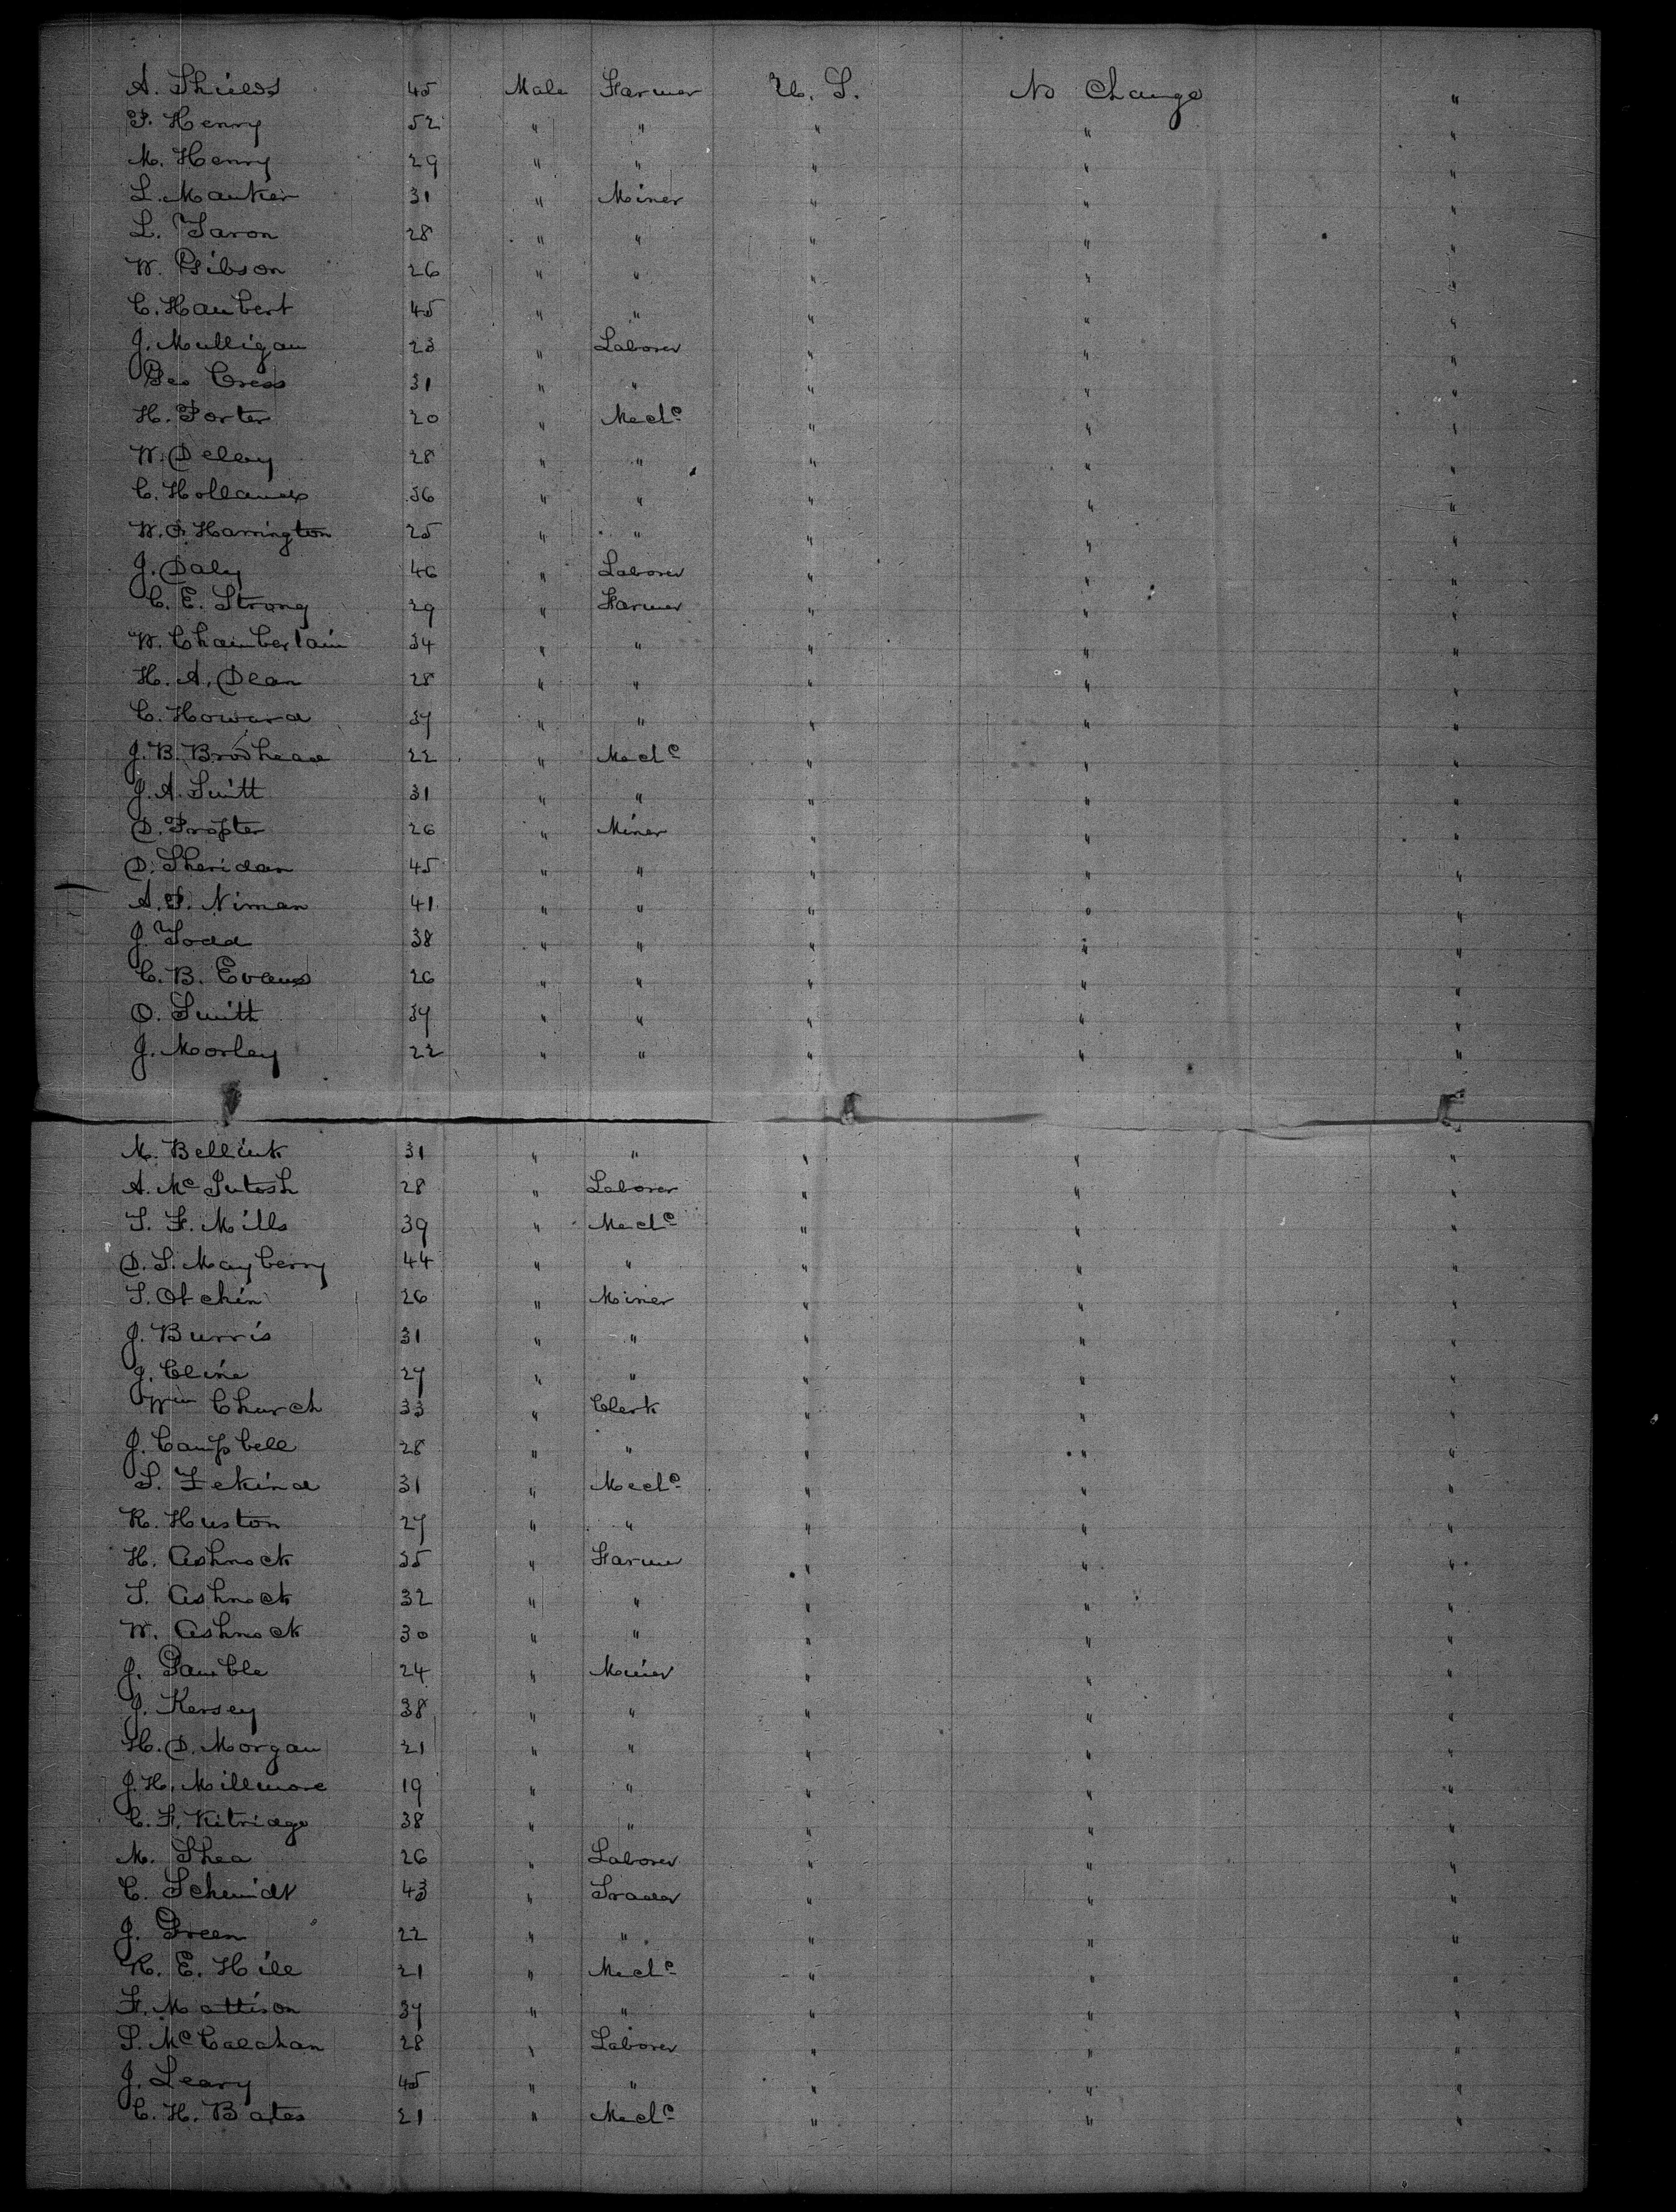 A. Shields 45 Male Farmer U. S. No Change "
P. Henry 52 " " " " "
M. Henry 29 " " " " "
L. Mantier 31 " Miner " " "
L. Taron 28 " " " " "
W. Gibson 26 " " " " "
C. Haubert 45 " " " " "
J. Mulligan 23 " Laborer " " "
Geo Cress 31 " " " " "
H. Porter 20 " Mechc " " "
W. Delay 28 " " " " "
C. Hollands 36 " " " " "
W. O. Harrington 25 " " " " "
J. Daly 46 " Laborer " " "
C. E. Strong 29 " Farmer " " "
W. Chamberlain 34 " " " " "
H. A. Dean 28 " " " " "
C. Howard 37 " " " " "
J. B. Brodhead 22 " Mechc " " "
J. A. Smitt 31 " " " " "
D. Propter 26 " Miner " " "
D. Sheridan 45 " " " " "
A. P. Niman 41 " " " " "
J. Todd 38 " " " " "
C. B. Evans 26 " " " " "
O. Smith 37 " " " " "
J. Morley 22 " " " " "
M. Bellink 31 " " " " "
A. McIntosh 28 " Laborer " " "
T. F. Mills 39 " Mechc " " "
D. S. Mayberry 44 " " " " "
T. Otchin 26 " Miner " " "
J. Burris 31 " " " " "
J. Cline 27 " " " " "
Wm Church 33 " Clerk " " "
J. Campbell 28 " " " " "
S. Zekind 31 " Mechc " " "
R. Huston 27 " " " " "
H. Ashnock 35 " Farmer " " "
T. Ashnock 32 " " " " "
W. Ashnock 30 " " " " "
J. Gamble 24 " Miner " " "
J. Kersey 38 " " " " "
H. D. Morgan 21 " " " " "
J. H. Millmore 19 " " " " "
C. F. Kitridge 38 " " " " "
M. Shea 26 " Laborer " " "
C. Schmidt 43 " Trader " " "
J. Green 22 " " " " "
R. E. Hill 21 " Mechc " " "
F. Mattison 37 " " " " "
P. McCalahan 28 " Laborer " " "
J. Leary 45 " " " " "
C. H. Bates 21 " Mechc " " "